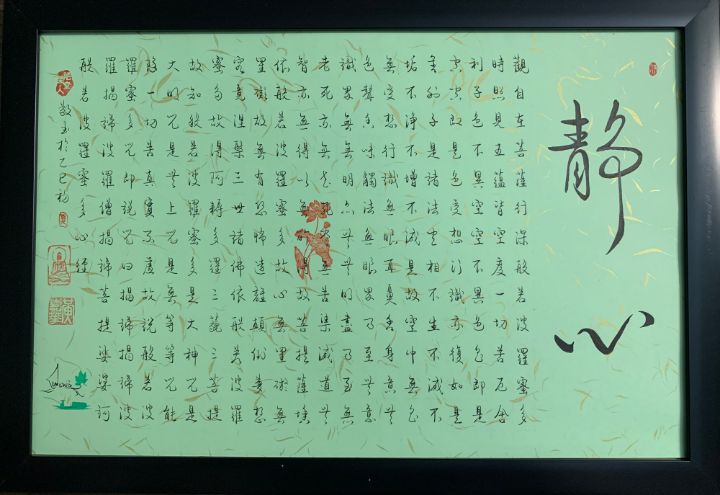 靜心
觀自在菩薩行深般若波羅蜜多
時照見五蘊皆空度一切苦厄舍
利子色不異空空不異色色即是
空空即是色受想行識亦復如是
舍利子是諸法空相不生不滅不
垢不淨不增不減是故空中無色
無受想行識無眼耳鼻舌身意無
色聲香味觸法無眼界乃至無意
識界無無明亦無無明盡乃至無
老死亦無老死盡無苦集滅道無
智亦無得以無所得故菩提薩埵
依般若波羅蜜多故心無罣礙無
罣礙故無有恐怖遠離顛倒夢想
究竟涅槃三世諸佛依般若波羅
蜜多故得阿耨多羅三藐三菩提
故知般若波羅蜜多是大神咒是
大明咒是無上咒是無等等咒能
除一切苦真實不虛故說般若波
羅蜜多咒即說咒曰揭諦揭諦波
羅揭諦波羅僧揭諦菩提娑婆訶
般若波羅蜜多心經
敬書於乙巳初